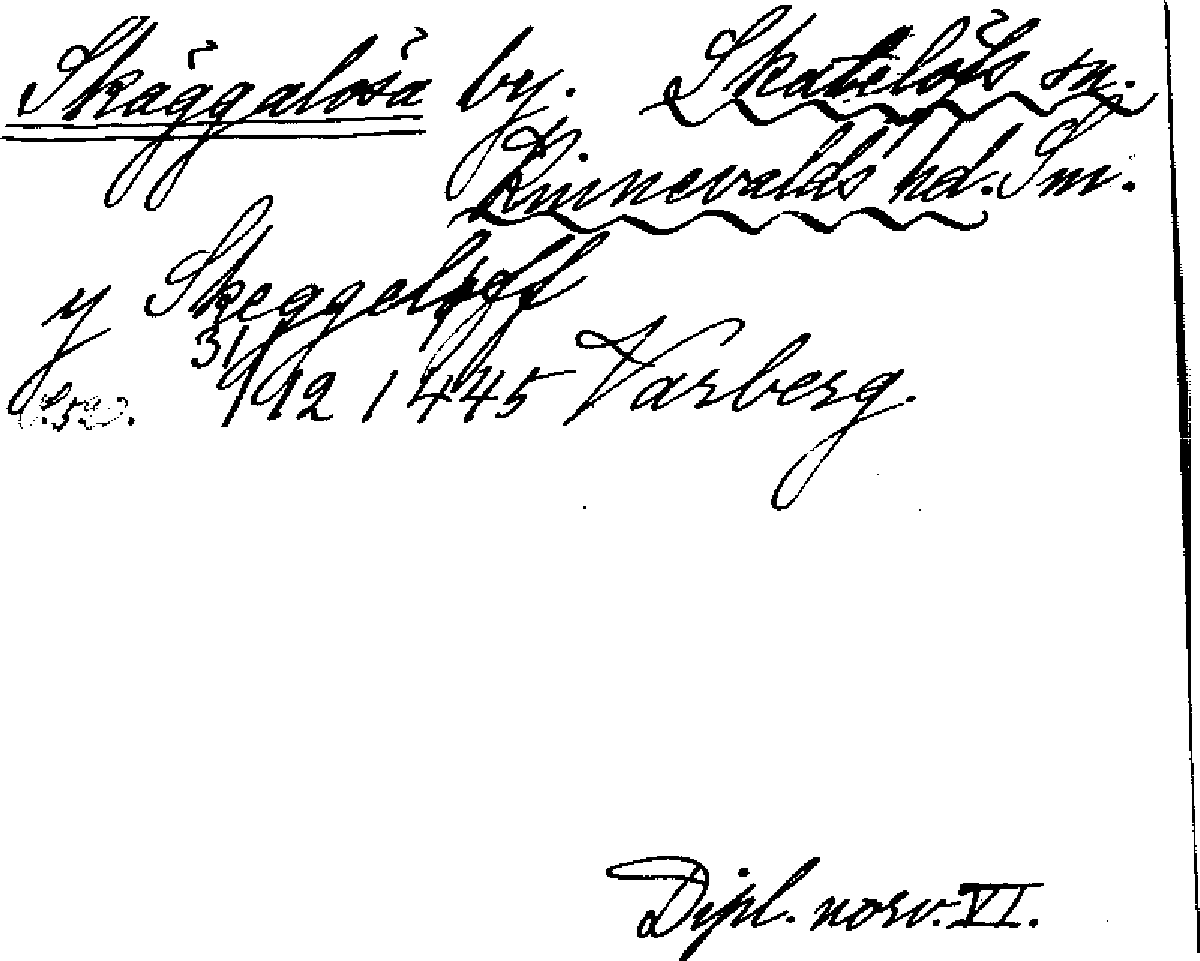 Skäggalösa by. Skatelövs sn.
Kinnevalds hd. Sm.
y Skeggeløff
31/12 1445 Varberg.
Dipl. norv. VI.